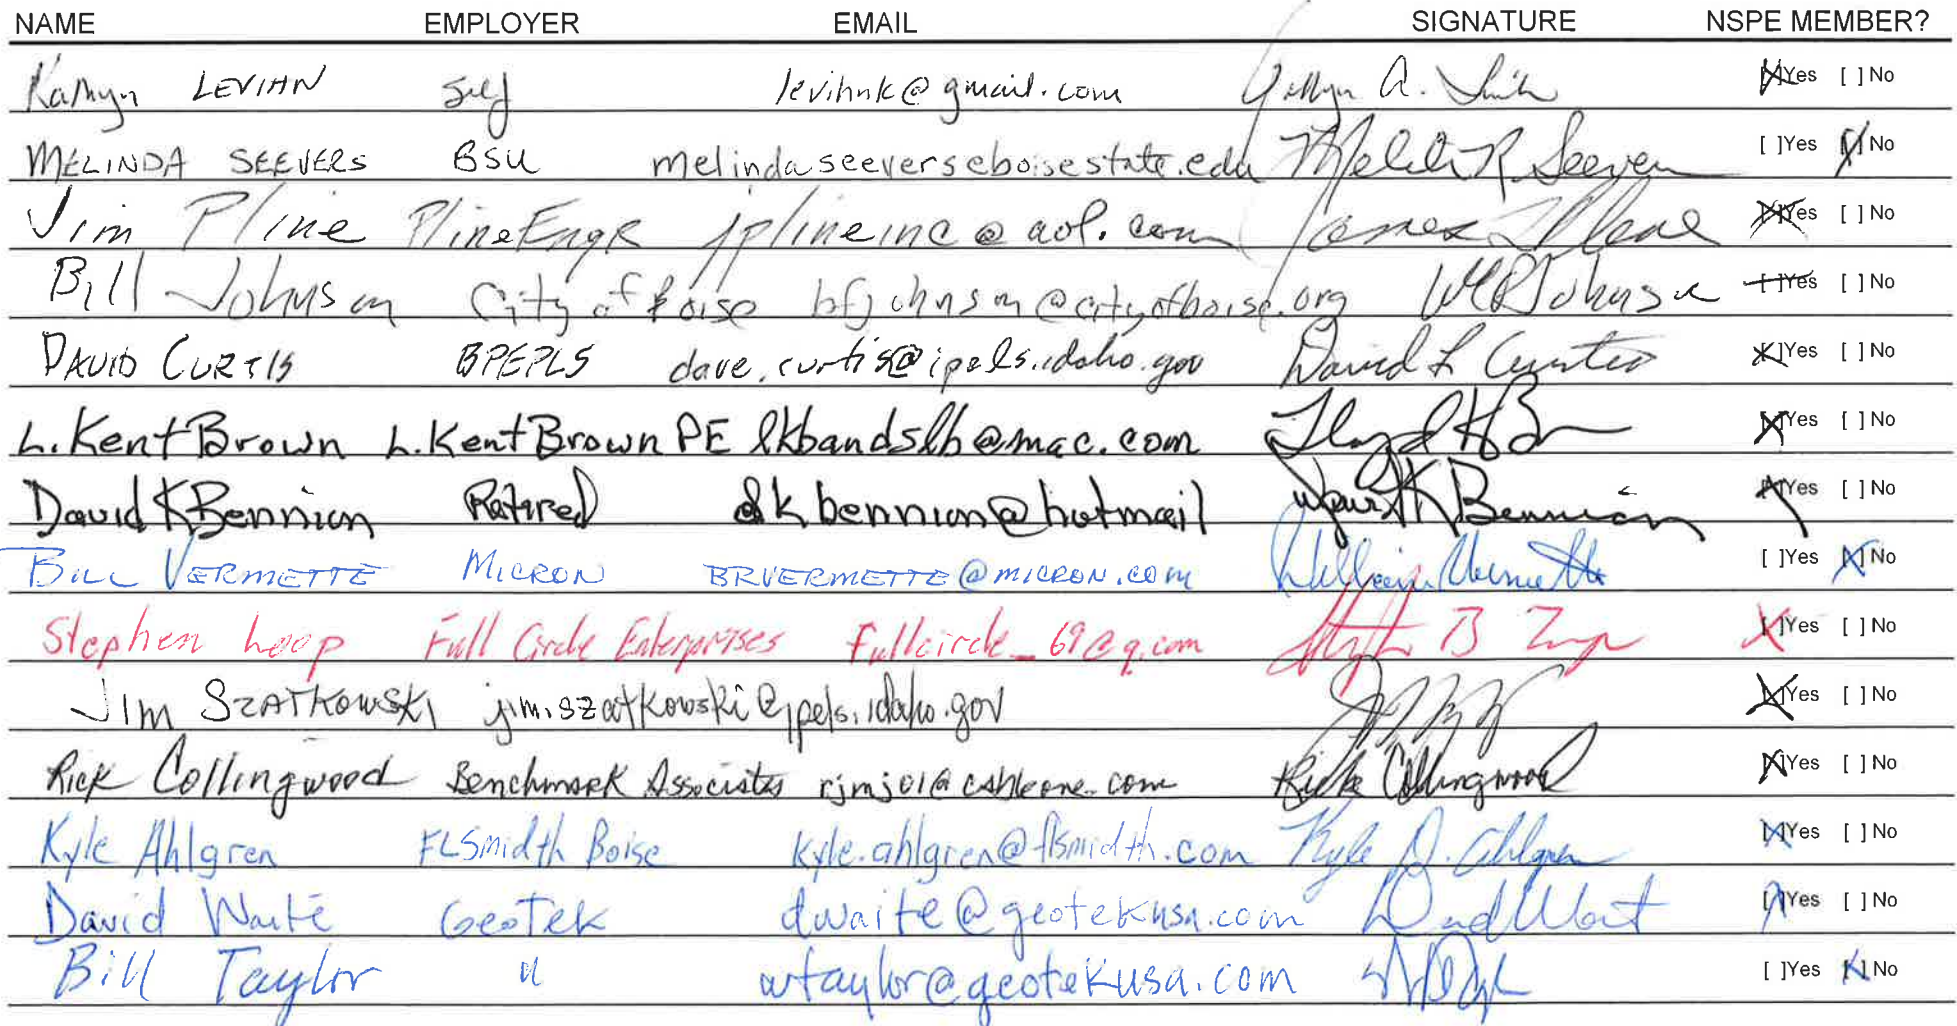 NAME EMPLOYER EMAIL SIGNATURE NSPE MEMBER?
Kathryn LEVIHN Self levihnk@gmail.com [X]Yes [ ]No
MELINDA SEEVERS BSU melindaseevers@boisestate.edu Melinda R Seevers [ ]Yes [X]No
Jim Pline Pline Engr jplineinc@aol.com James L Pline [X]Yes [ ]No
Bill Johnson City of Boise bfjohnson@cityofboise.org [X]Yes [ ]No
DAVID CURTIS BPEPLS dave.curtis@ipels.idaho.gov David L Curtis [X]Yes [ ]No
L. Kent Brown L. Kent Brown PE lkbandslb@mac.com [X]Yes [ ]No
David K Bennion Retired dkbennion@hotmail David K Bennion [X]Yes [ ]No
BILL VERMETTE MICRON BRVERMETTE@MICRON.COM William Vermette [ ]Yes [X]No
Stephen Loop Full Circle Enterprises fullcircle_69@q.com [X]Yes [ ]No
JIM SZATKOWSKI jim.szatkowski@ipels.idaho.gov [X]Yes [ ]No
Rick Collingwood Benchmark Associates rjmj01@cableone.com Rick Collingwood [X]Yes [ ]No
Kyle Ahlgren FLSmidth Boise kyle.ahlgren@flsmidth.com Kyle D. Ahlgren [X]Yes [ ]No
David Waite GeoTek dwaite@geotekusa.com David Wait [X]Yes [ ]No
Bill Taylor " wtaylor@geotekusa.com [ ]Yes [X]No